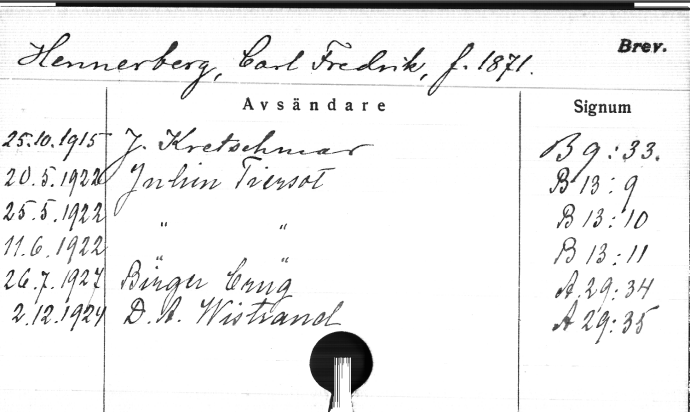 Hennerberg, Carl Fredrik, f. 1871. Brev.
Avsändare Signum
25.10.1915 J. Kretschmar B 9:33.
20.5.1922 Julien Tiersot B 13:9
25.5.1922 " " B 13:10
11.6.1922 " " B 13:11
26.7.1927 Birger A 29:34
2.12.1924 D. A. Wistrand A 29:35